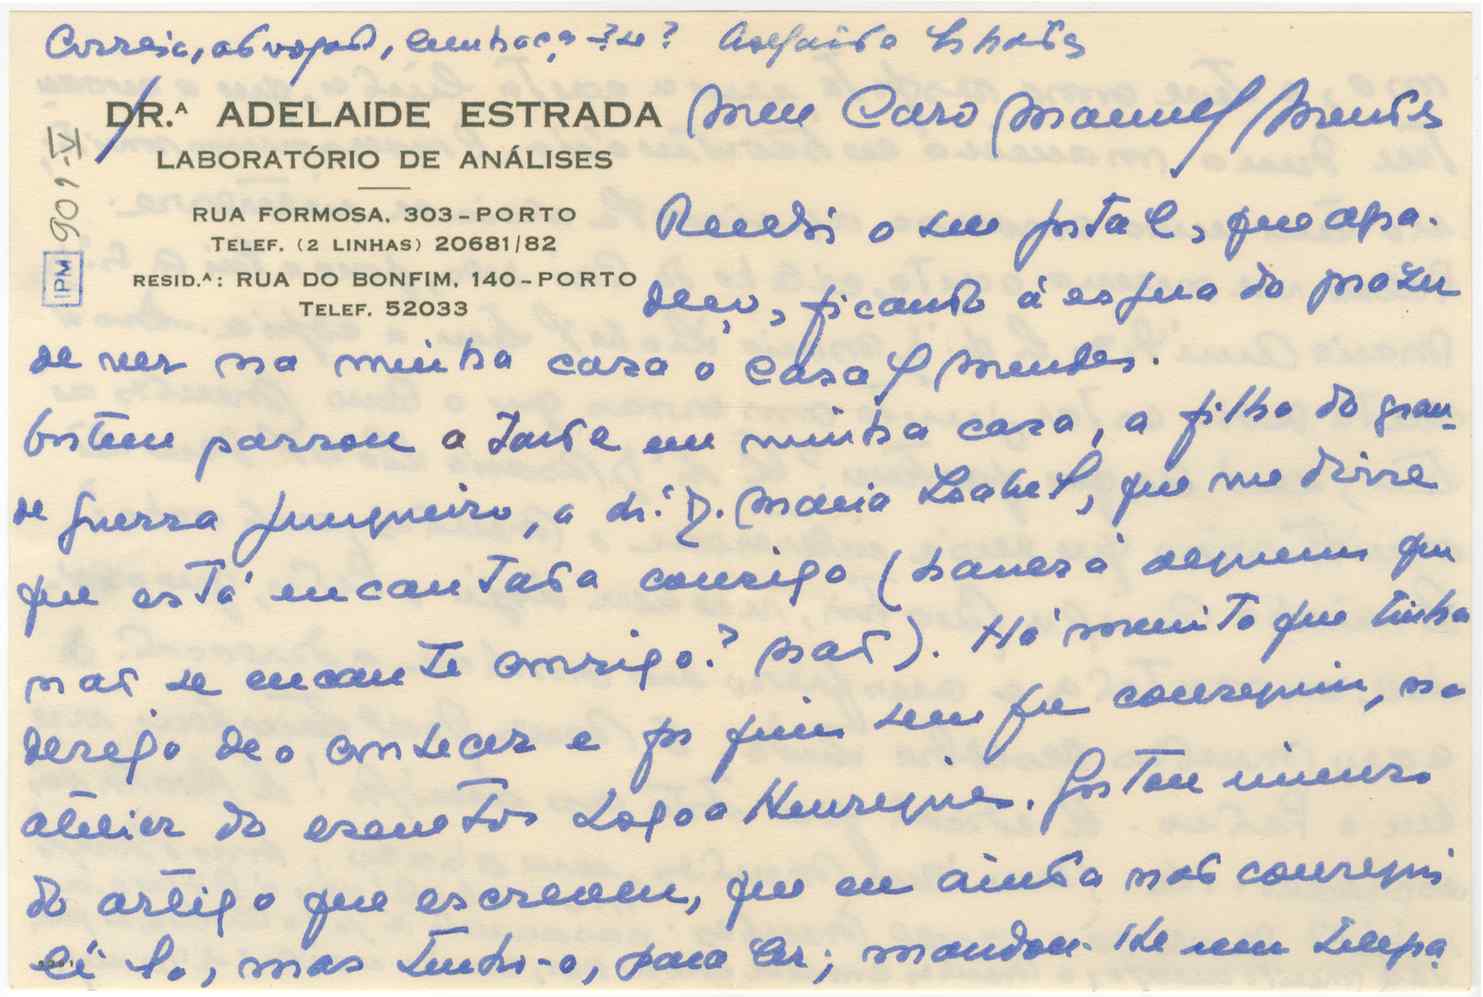 Adelaide Estrada
DR.ᴬ ADELAIDE ESTRADA
LABORATÓRIO DE ANÁLISES
RUA FORMOSA, 303-PORTO
TELEF. (2 LINHAS) 20681/82
RESID.ᴬ: RUA DO BONFIM, 140-PORTO
TELEF. 52033
901-IV
IPM
Meu Caro Manuel Mendes
Recebi o seu postal, que agra-
deço, ficando à espera do prazer
de ver na minha casa o casal Mendes.
Ontem passou a tarde em minha casa, a filha do gran-
de Guerra Junqueiro, a Sr.ª D. Maria Isabel, que me disse
que está encantada consigo (haverá alguem que
não se encante consigo? Não). Há muito que tinha
desejo de o conhecer e por fim sempre conseguiu, no
atelier do escultor Lagoa Henriques. Gostou imenso
do artigo que escreveu, que eu ainda não consegui
lê-lo, mas tenho-o, para ler; mandou-me um